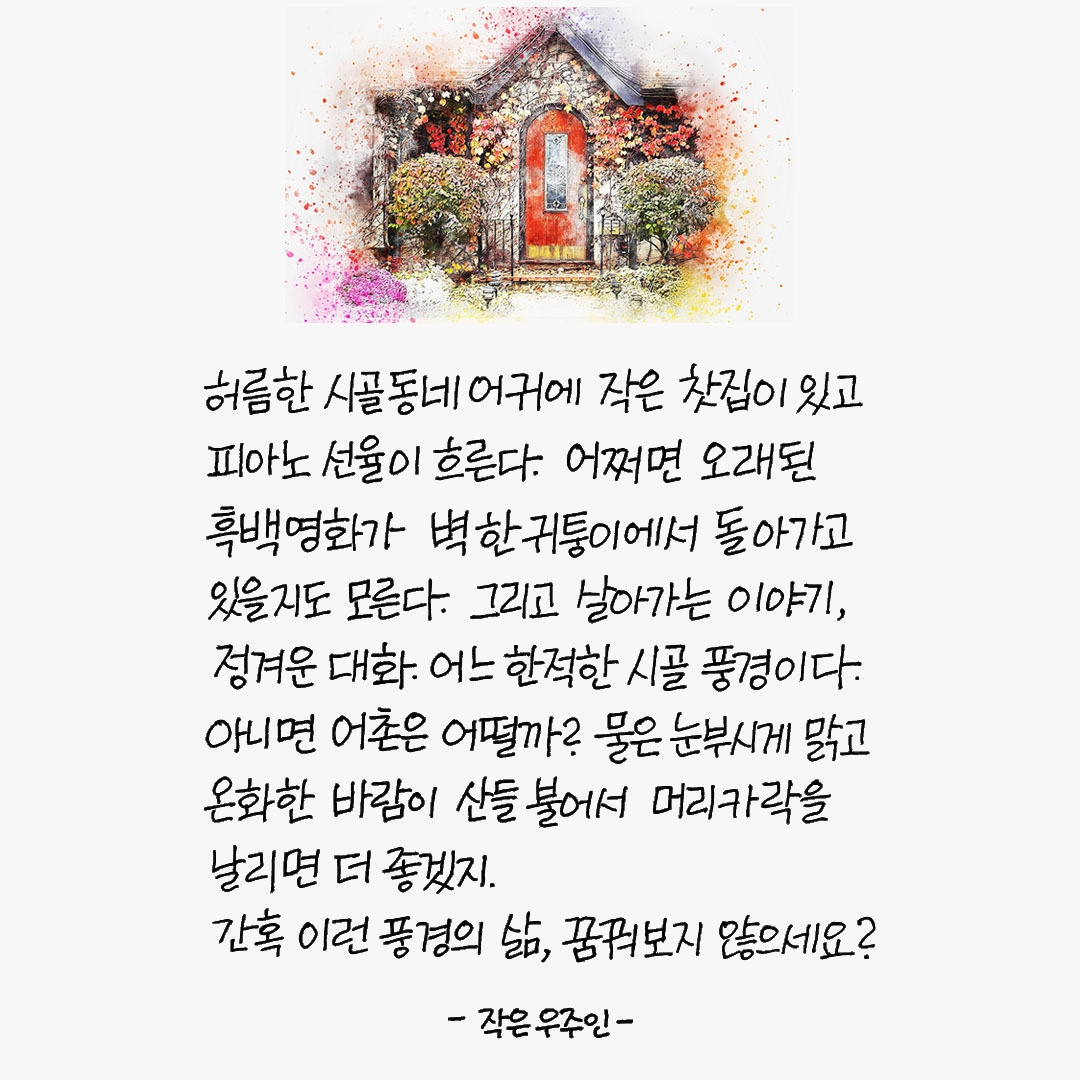 허름한 시골동네 어귀에 작은 찻집이 있고
피아노 선율이 흐른다. 어쩌면 오래된
흑백영화가 벽 한 귀퉁이에서 돌아가고
있을지도 모른다. 그리고 살아가는 이야기,
정겨운 대화. 어느 한적한 시골 풍경이다.
아니면 어촌은 어떨까? 물은 눈부시게 맑고
온화한 바람이 산들 불어서 머리카락을
날리면 더 좋겠지.
간혹 이런 풍경의 삶, 꿈꿔보지 않으세요?
- 작은 우주인 -